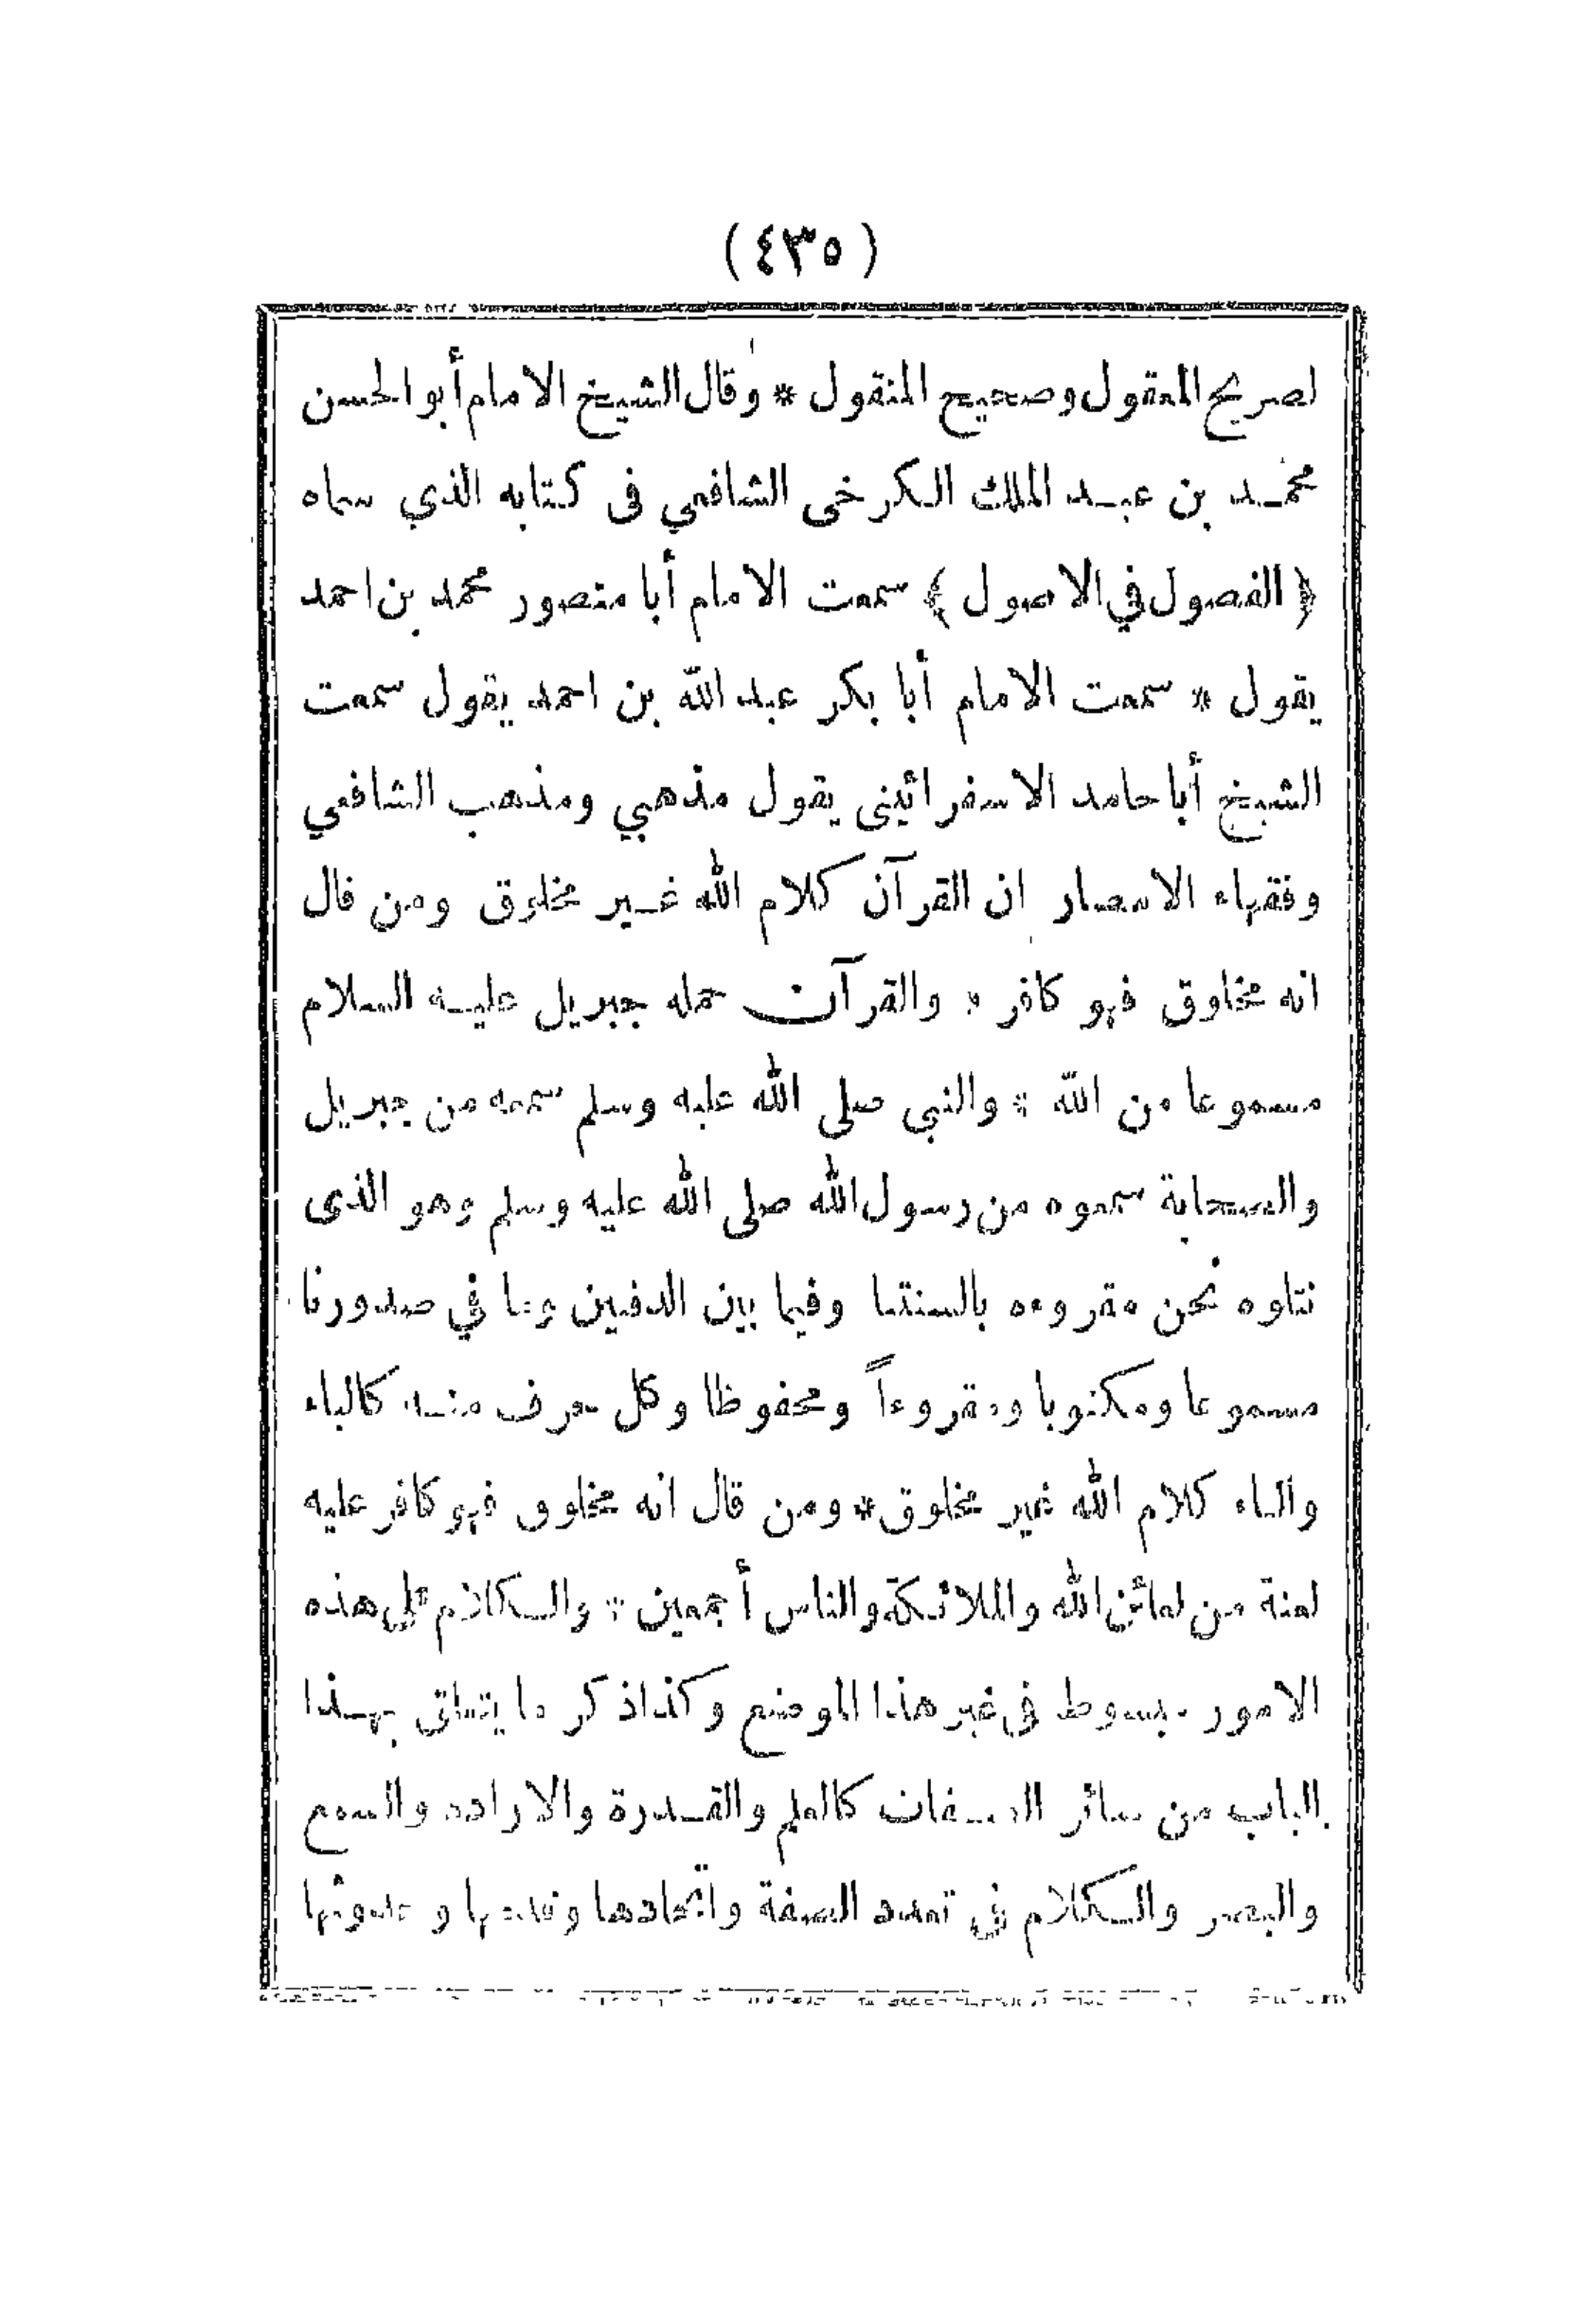 (٤٣٥)
لصريح المعقول وصحيح المنقول * وقال الشيخ الامام أبو الحسن
محمد بن عبد الملك الكرخى الشافعي فى كتابه الذي سماه
﴿ الفصول في الاصول ﴾ سمعت الامام أبا منصور محمد بن احمد
يقول * سمعت الامام أبا بكر عبد الله بن احمد يقول سمعت
الشيخ أبا حامد الاسفرائينى يقول مذهبي ومذهب الشافعي
وفقهاء الامصار ان القرآن كلام الله غير مخلوق ومن قال
انه مخلوق فهو كافر * والقرآن حمله جبريل عليه السلام
مسموعا من الله * والنبي صلى الله عليه وسلم سمعه من جبريل
والصحابة سمعوه من رسول الله صلى الله عليه وسلم وهو الذى
نتلوه نحن مقروءه بالسنتنا وفيما بين الدفتين وما في صدورنا
مسموعا ومكتوبا ومقروءاً ومحفوظا وكل حرف منه كالباء
والتاء كلام الله غير مخلوق * ومن قال انه مخلوق فهو كافر عليه
لعنة من لعائن الله والملائكة والناس أجمعين * والكلام على هذه
الامور مبسوط فى غير هذا الموضع وكذا ذكر ما يتعلق بهذا
الباب من سائر الصفات كالعلم والقدرة والارادة والسمع
والبصر والكلام في تعدد الصفة واتحادها وقدمها وحدوثها